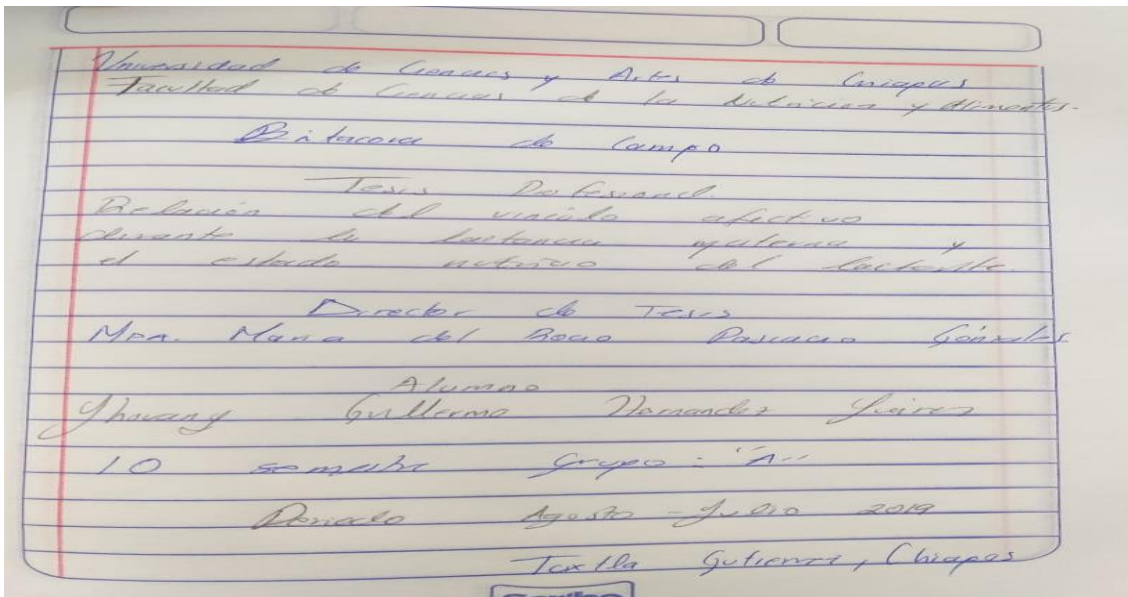 Universidad de Ciencias y Artes de Chiapas
Facultad de Ciencias de la Nutricion y Alimentos.
Bitacora de Campo
Tesis Profesional.
Relación del vinculo afectivo
durante la lactancia materna y
el estado nutricio del lactante.
Director de Tesis
Mra. Maria del Rocio Pascacio Gónzalez
Alumno
Yhovany Guillermo Hernandez
10 semestre Grupo: "A"
Periodo Agosto - Julio 2019
Tuxtla Gutierrez, Chiapas